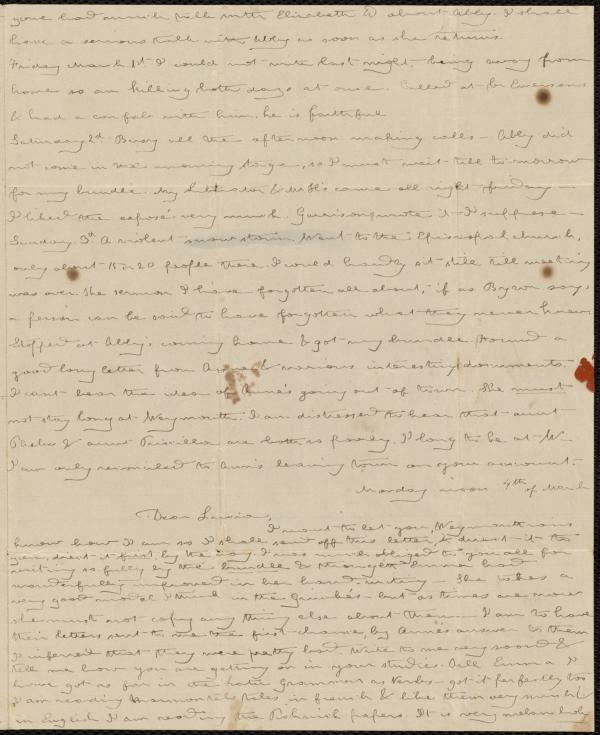 you had much talk with Elizabeth D about Abby. I shall
have a serious talk with Abby as soon as she returns.
Friday March 1st I could not write last night, being away from
home so am killing both days at once. Called at Mr Emersons
& had a confab with him, he is faithful
Saturday 2d Busy all the afternoon making calls – Abby did
not come in the morning stage, so I must wait till to-morrow
for my bundle. My Liberator & Mr H's came all right friday –
I liked the exposé very much. Garrison wrote it I suppose –
Sunday 3d. A violent snow storm. Went to the Episcopal church,
only about 15 or 20 people there. I could hardly sit still till meeting
was over. The sermon I have forgotten all about, "if as Byron says
a person can be said to have forgotten what they never knew"
Stopped at Abby's coming home & got my bundle. Found a
good long letter from Anne & various interesting documents.
I cant bear the idea of Anne's going out of town. She must
not stay long at Weymouth. I am distressed to hear that aunt
Phebe & aunt Priscilla are both so poorly. I long to be at W–
I am only reconciled to Ann's leaving town on your account.
Monday noon 4th of March
Dear Lucia,
I want to let you Weymouth ones
know how I am so I shall send off this letter, & direct it to
you, direct it first, by the way. I was much obliged to you all for
writing so fully by the bundle & thought Emma had
wonderfully improved in her hand-writing – She takes a
very good model I think in the Grimkés – but as times are now
she must not copy any thing else about them. I am to have
their letters sent to me the first chance, by Anne's answer to them
I inferred that they were pretty bad. Write to me very soon &
tell me how you are getting on in your studies. Tell Emma I
have got as far in the latin Grammar as Verbs – got it perfectly too
I am reading Marmontels tales in french & like them very much
in English I am reading the Pickwick papers. It is very melancholy